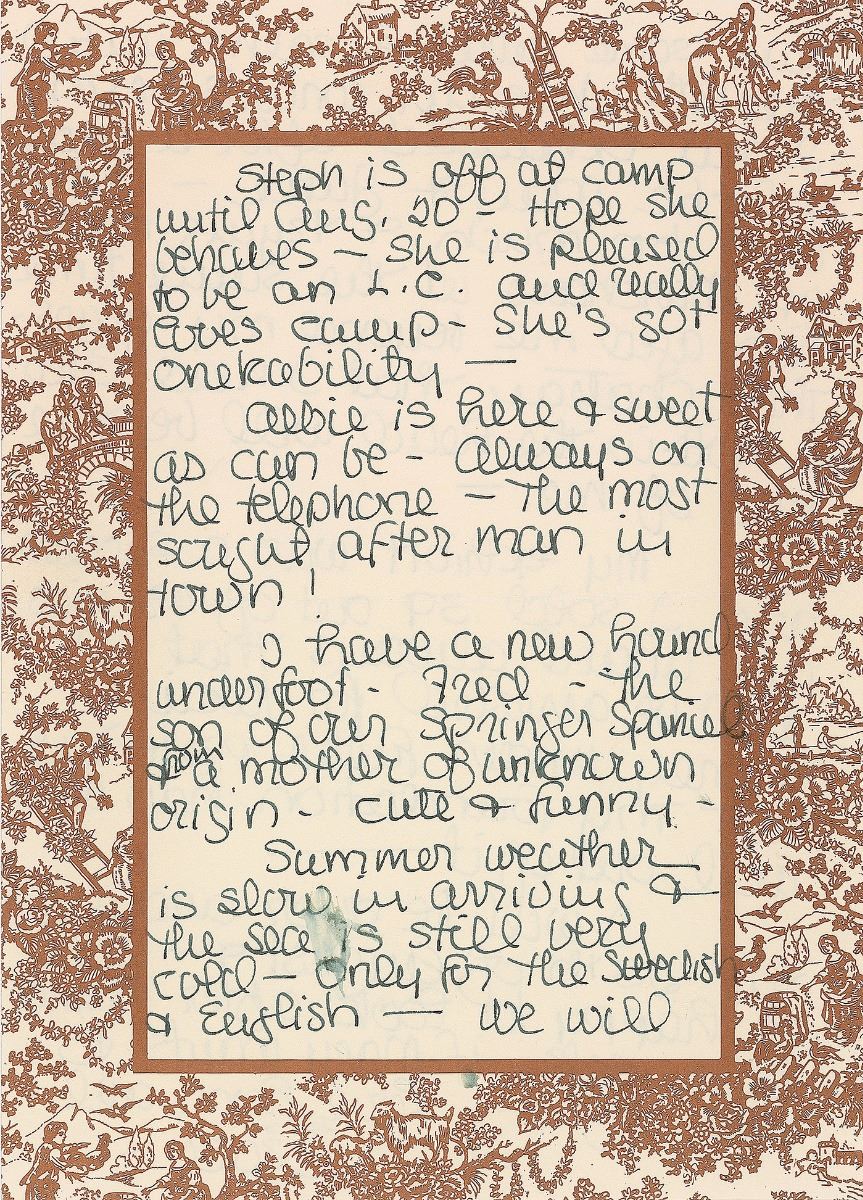 Steph is off at camp
until Aug. 20 - Hope she
behaves - She is pleased
to be an L.C. and really
loves camp - She's got
onekability —
Aebie is here & sweet
as can be - always on
the telephone - The most
sought after man in
town!
I have a new hound
underfoot - Fred - the
son of our Springer Spaniel
from a mother of unknown
origin - cute & funny -
Summer weather
is slow in arriving &
the sea is still very
cold - only for the Swedish
& English — we will